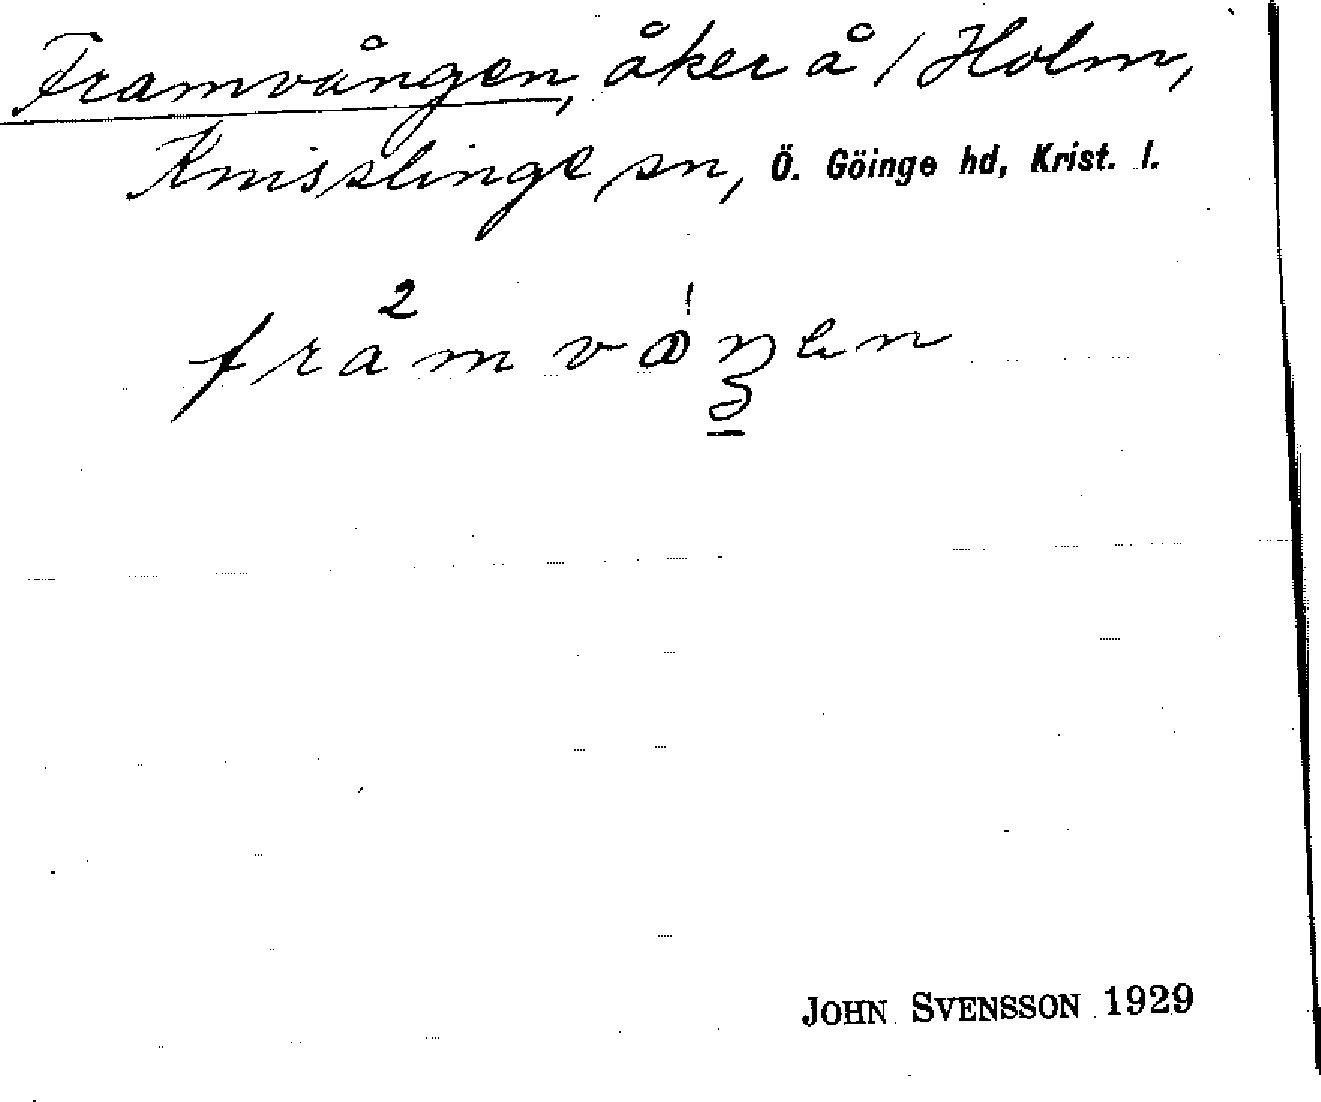 Framvången, åker å / Holm,
Knisslinge sn, Ö. Göinge hd, Krist. l.
JOHN SVENSSON 1929